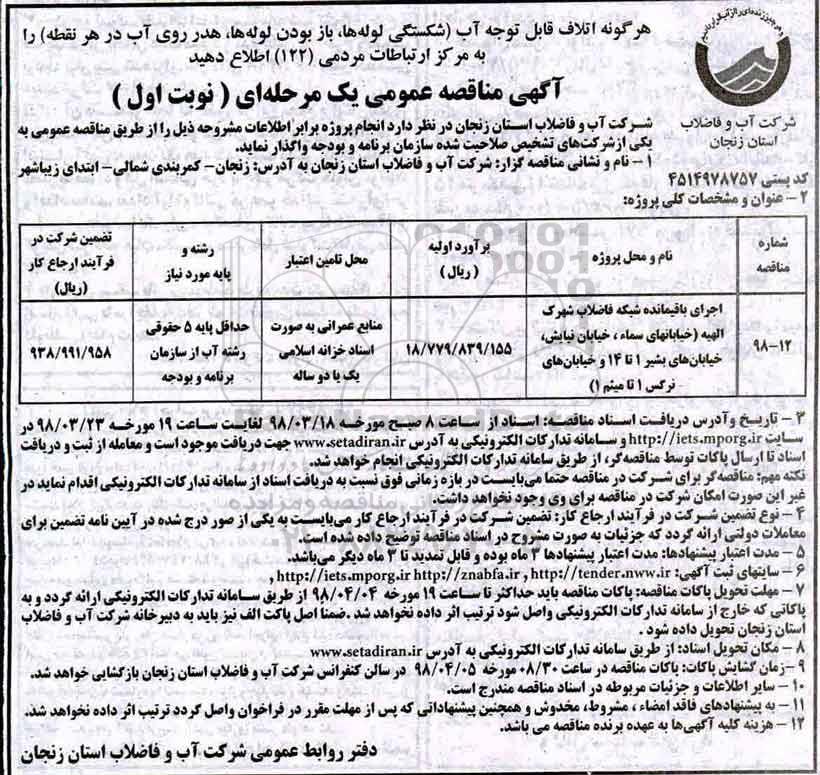 هرگونه اتلاف قابل توجه آب (شکستگی لوله‌ها، باز بودن لوله‌ها، هدر روی آب در هر نقطه) را
به مرکز ارتباطات مردمی (۱۲۲) اطلاع دهید
آگهی مناقصه عمومی یک مرحله‌ای ( نوبت اول )
شرکت آب و فاضلاب
استان زنجان
شرکت آب و فاضلاب استان زنجان در نظر دارد انجام پروژه برابر اطلاعات مشروحه ذیل را از طریق مناقصه عمومی به
یکی از شرکت‌های تشخیص صلاحیت شده سازمان برنامه و بودجه واگذار نماید.
۱- نام و نشانی مناقصه گزار: شرکت آب و فاضلاب استان زنجان به آدرس: زنجان- کمربندی شمالی- ابتدای زیباشهر
کد پستی ۴۵۱۴۹۷۸۷۵۷
۲- عنوان و مشخصات کلی پروژه:
شماره مناقصه
نام و محل پروژه
برآورد اولیه (ریال)
محل تامین اعتبار
رشته و پایه مورد نیاز
تضمین شرکت در فرآیند ارجاع کار (ریال)
۹۸-۱۲
اجرای باقیمانده شبکه فاضلاب شهرک
الهیه (خیابانهای سماء ، خیابان نیایش،
خیابان‌های بشیر ۱ تا ۱۴ و خیابان‌های
نرکس ۱ تا میثم ۱)
۱۸/۷۷۹/۸۳۹/۱۵۵
منابع عمرانی به صورت
اسناد خزانه اسلامی
یک یا دو ساله
حداقل پایه ۵ حقوقی
رشته آب از سازمان
برنامه و بودجه
۹۳۸/۹۹۱/۹۵۸
۳- تاریخ وآدرس دریافت اسناد مناقصه: اسناد از ساعت ۸ صبح مورخه ۹۸/۰۳/۱۸ لغایت ساعت ۱۹ مورخه ۹۸/۰۳/۲۳ در
سایت http://iets.mporg.ir و سامانه تدارکات الکترونیکی به آدرس www.setadiran.ir جهت دریافت موجود است و معامله از ثبت و دریافت
اسناد تا ارسال پاکات توسط مناقصه‌گر، از طریق سامانه تدارکات الکترونیکی انجام خواهد شد.
نکته مهم: مناقصه‌گر برای شرکت در مناقصه حتما می‌بایست در بازه زمانی فوق نسبت به دریافت اسناد از سامانه تدارکات الکترونیکی اقدام نماید در
غیر این صورت امکان شرکت در مناقصه برای وی وجود نخواهد داشت.
۴- نوع تضمین شرکت در فرآیند ارجاع کار: تضمین شرکت در فرآیند ارجاع کار می‌بایست به یکی از صور درج شده در آیین نامه تضمین برای
معاملات دولتی ارائه گردد که جزئیات به صورت مشروح در اسناد مناقصه توضیح داده شده است.
۵- مدت اعتبار پیشنهادها: مدت اعتبار پیشنهادها ۳ ماه بوده و قابل تمدید تا ۳ ماه دیگر می‌باشد.
۶- سایتهای ثبت آگهی: http://iets.mporg.ir http://znabfa.ir , http://tender.nww.ir ,
۷- مهلت تحویل پاکات مناقصه: پاکات مناقصه باید حداکثر تا ساعت ۱۹ مورخه ۹۸/۰۴/۰۴ از طریق سامانه تدارکات الکترونیکی ارائه گردد و به
پاکاتی که خارج از سامانه تدارکات الکترونیکی واصل شود ترتیب اثر داده نخواهد شد .ضمنا اصل پاکت الف نیز باید به دبیرخانه شرکت آب و فاضلاب
استان زنجان تحویل داده شود .
۸- مکان تحویل اسناد: از طریق سامانه تدارکات الکترونیکی به آدرس www.setadiran.ir
۹- زمان گشایش پاکات: پاکات مناقصه در ساعت ۰۸/۳۰ مورخه ۹۸/۰۴/۰۵ در سالن کنفرانس شرکت آب و فاضلاب استان زنجان بازگشایی خواهد شد.
۱۰- سایر اطلاعات و جزئیات مربوطه در اسناد مناقصه مندرج است.
۱۱- به پیشنهادهای فاقد امضاء ، مشروط، مخدوش و همچنین پیشنهاداتی که پس از مهلت مقرر در فراخوان واصل گردد ترتیب اثر داده نخواهد شد.
۱۲- هزینه کلیه آگهی‌ها به عهده برنده مناقصه می باشد.
دفتر روابط عمومی شرکت آب و فاضلاب استان زنجان